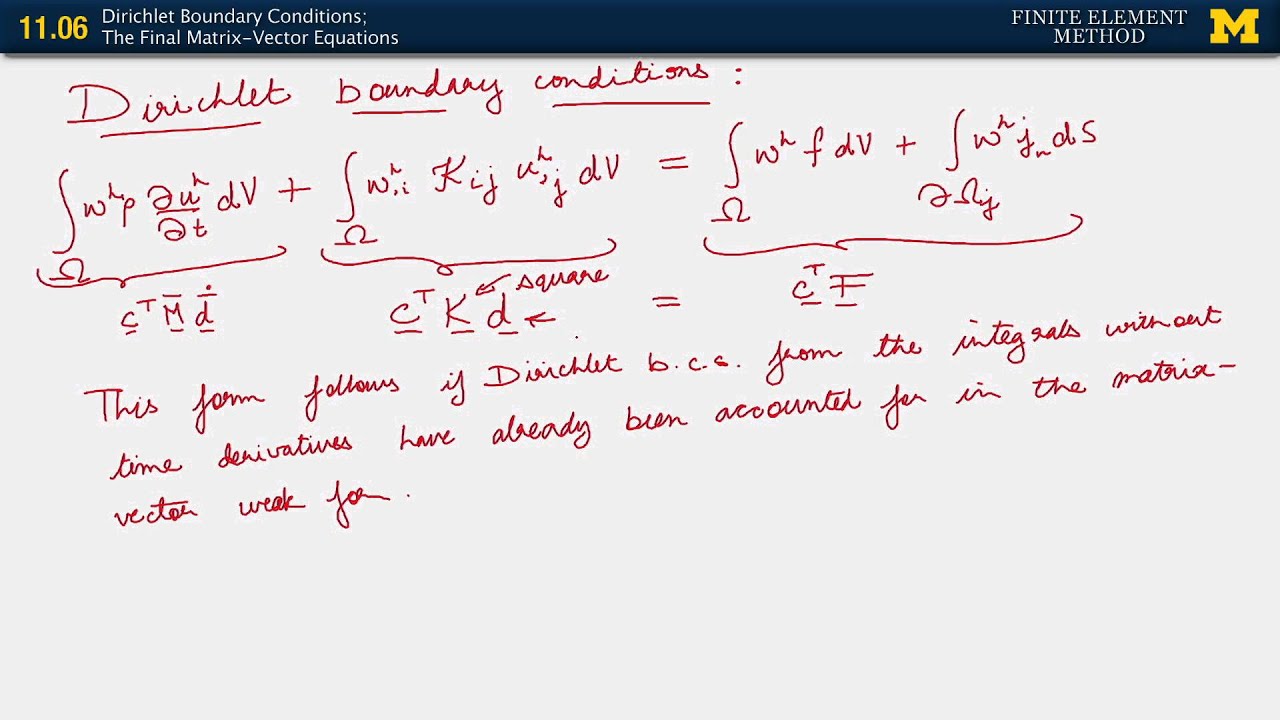 11.06
Dirichlet Boundary Conditions;
The Final Matrix–Vector Equations
FINITE ELEMENT
METHOD
M
Dirichlet boundary conditions :
∫_Ω w^h ρ ∂u^h/∂t dV + ∫_Ω w^h_{,i} K_{ij} u^h_{,j} dV = ∫_Ω w^h f dV + ∫_{∂Ω_j} w^h j_n dS
c^T M̄ ḋ c^T K d ← square = c^T F
This form follows if Dirichlet b.c.s. from the integrals without
time derivatives have already been accounted for in the matrix-
vector weak form.